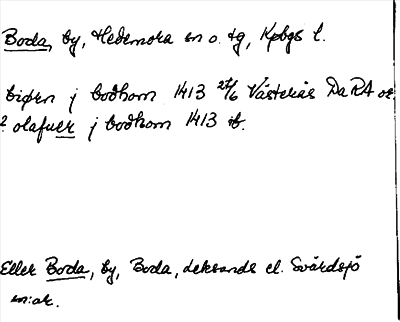 Boda, by, Hedemora sn o. tg, Kpbgs l.
biørn j bodhom 1413 24/6 Västerås DaRA or.
? olafuer j bodhom 1413 ib.
Eller Boda, by, Boda, Leksands el. Svärdsjö
sn:ar.